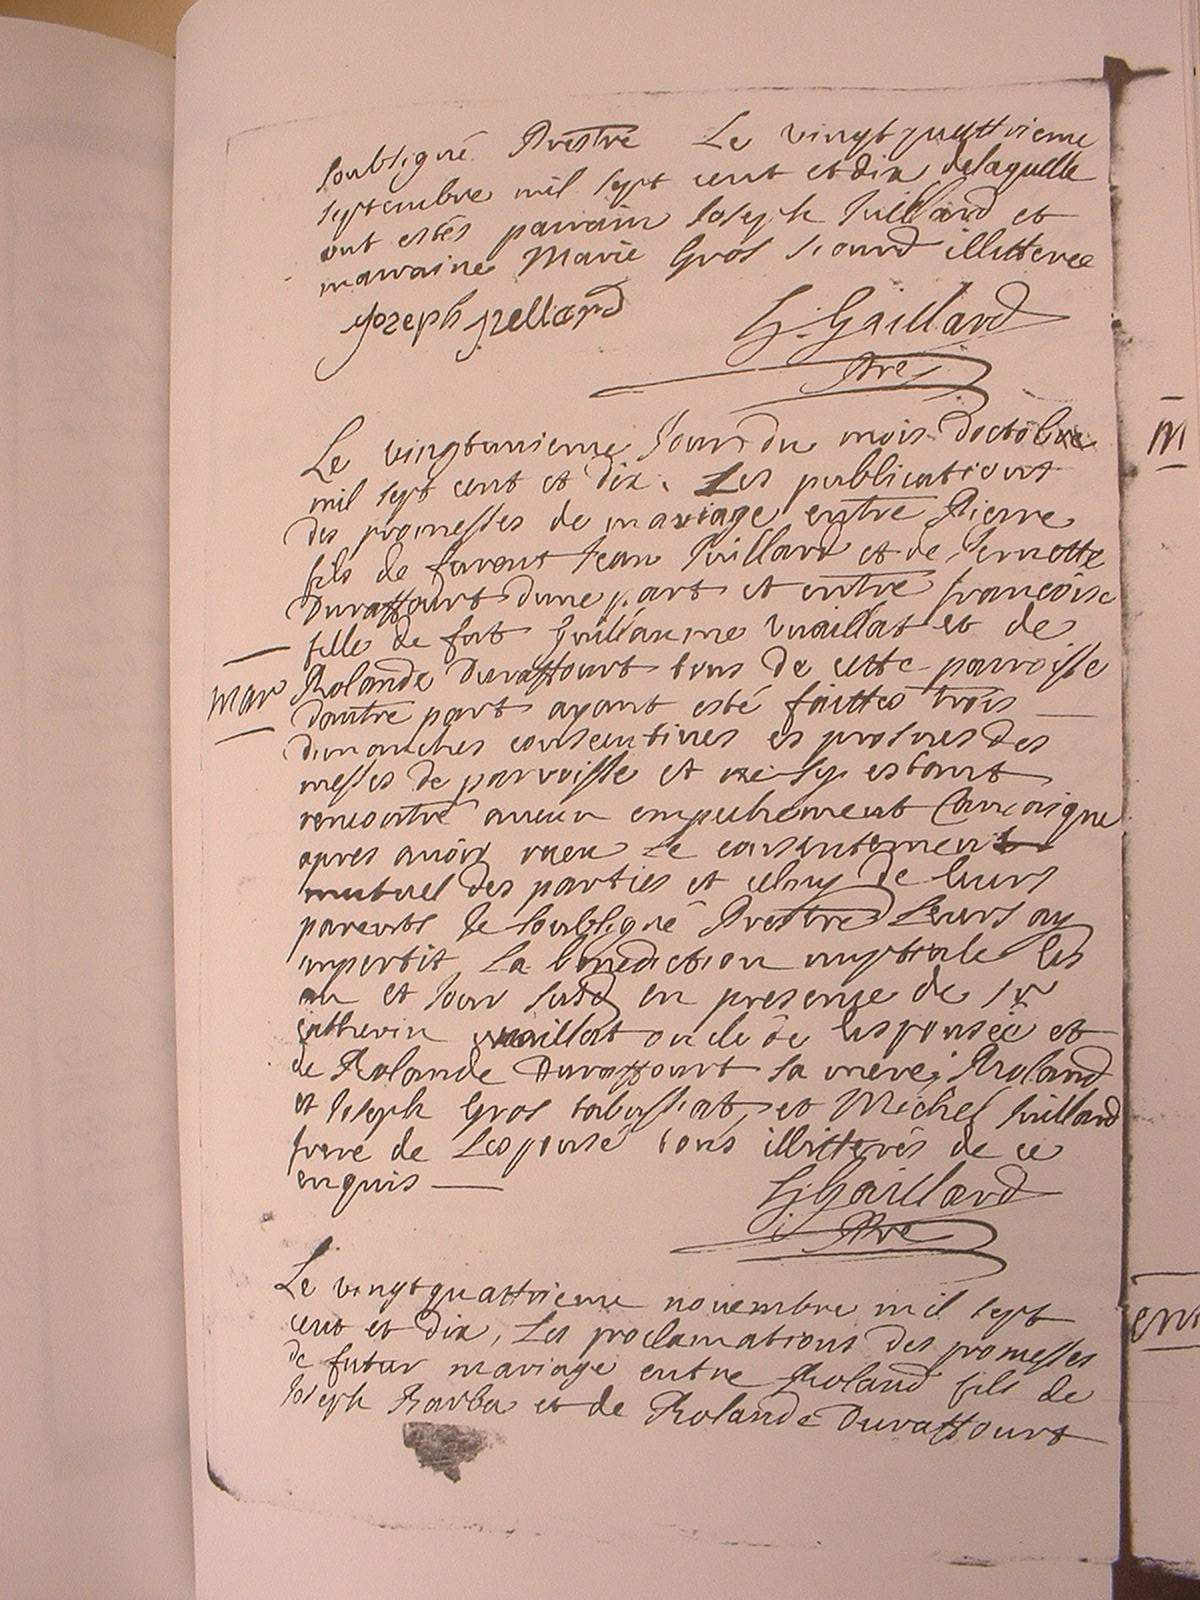 soubsigné Prestre Le vingt quattrieme
septembre mil sept cent et dix de laquelle
ont estés parrain Joseph Juilliard et
marraine Marie Gros Siourd illitteree
Joseph Jzelliard
G. Gaillard
Ptre
Le vingtunieme Jour du mois doctobre
mil sept cent et dix. Les publications
des promesses de mariage entre Pierre
fils de furent Jean Juilliard et de Pernette
Duraffourt dune part et entre francoise
fille de fut Guillaume Vuaillat et de
Rolande Duraffourt tous de cette parroisse
dautre part ayant esté faittes trois
dimanches consecutives es prosnes des
messes de parroisse et ne sy estant
rencontré aucun empechement Canonique
apres avoir receu le consentement
mutuel des parties et celuy de leurs
parents le soubsigné Prestre Leurs ay
impertit La benediction nuptiale les
an et Jour susd en presence de Sr
Catherin vuaillat oncle de lespousée et
de Rolande Duraffourt sa mere; Roland
et Joseph Gros tabussiat, et Michel Juilliard
frere de Lespousé tous illitterés de ce
enquis
G Gaillard
Ptre
mar
Le vingtquattrieme novembre mil sept
cent et dix, Les proclamations des promesses
de futur mariage entre Roland fils de
Joseph Barba et de Rolande Duraffourt